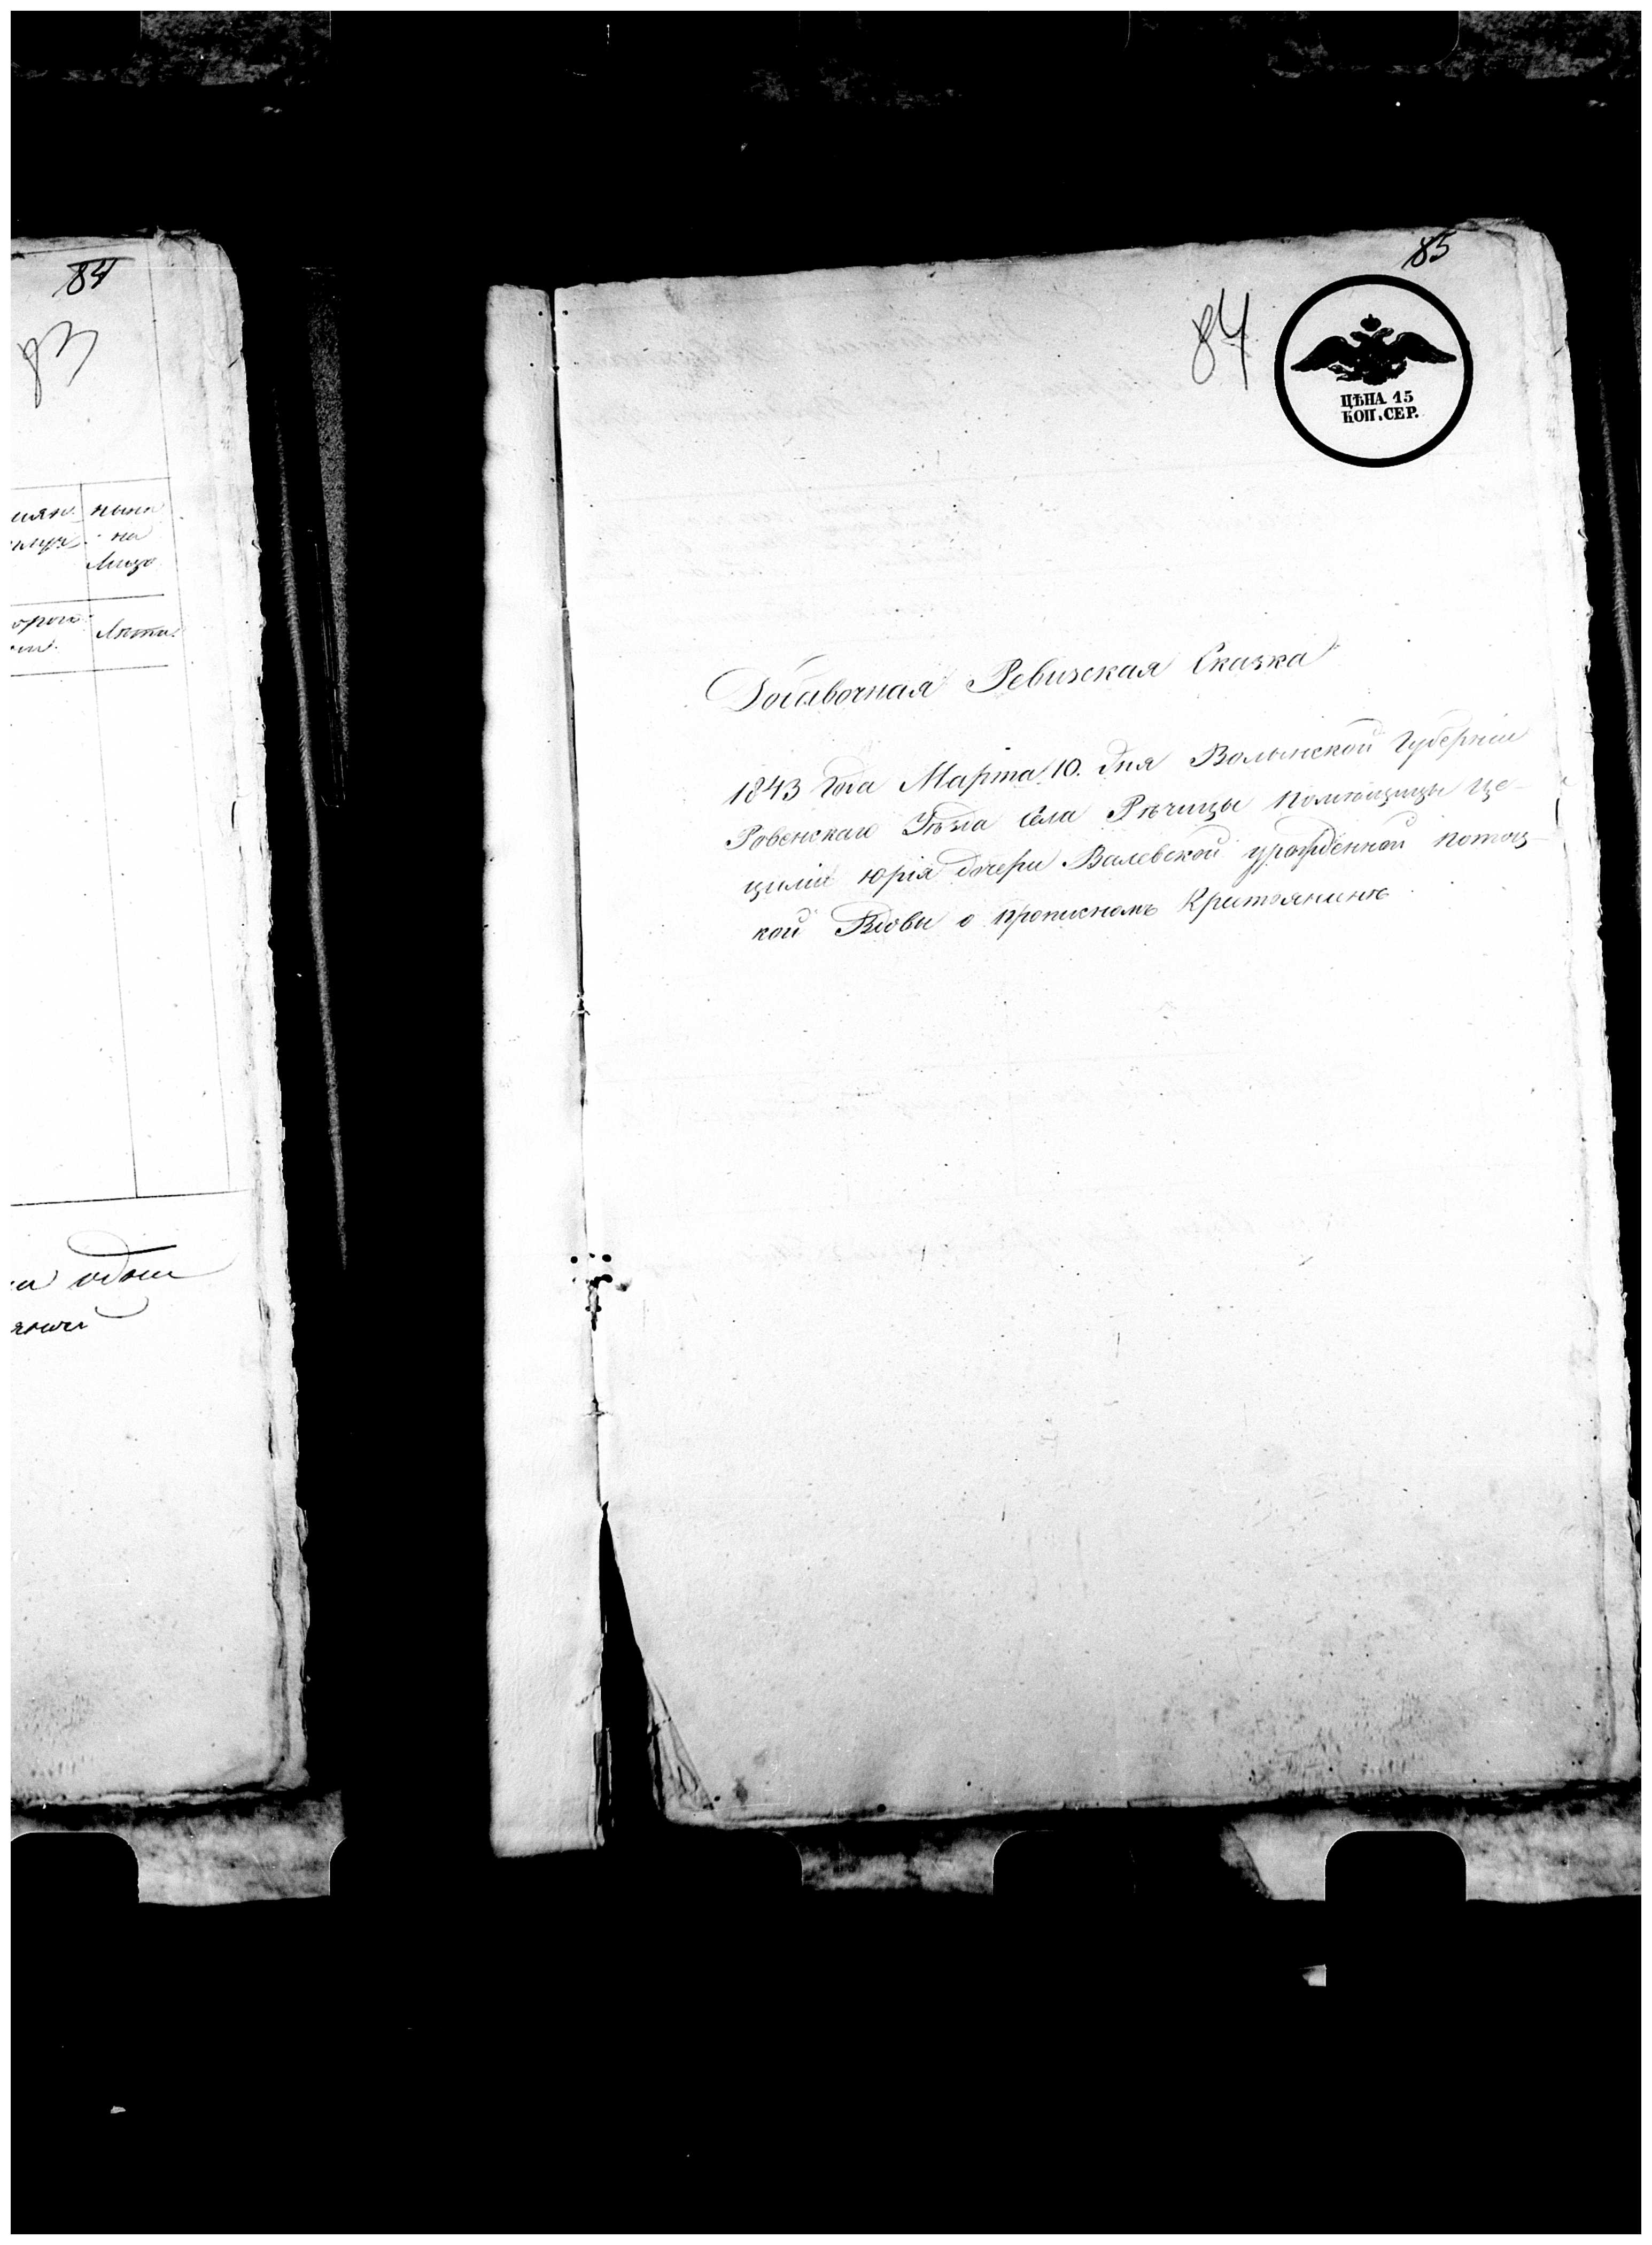 84
83
ныне
на
лицо
Лета.
85
84
ЦѢНА 15
КОП. СЕР.
Добавочная Ревизская Сказка
1843 года Марта 10. дня Волынской Губерніи
Ровенскаго Уѣзда Села Рѣчицы помѣщицы Це-
циліи Юрія дочери Валевской урожденной Потоц-
кой Вдовы о прописномъ Крестьянинѣ